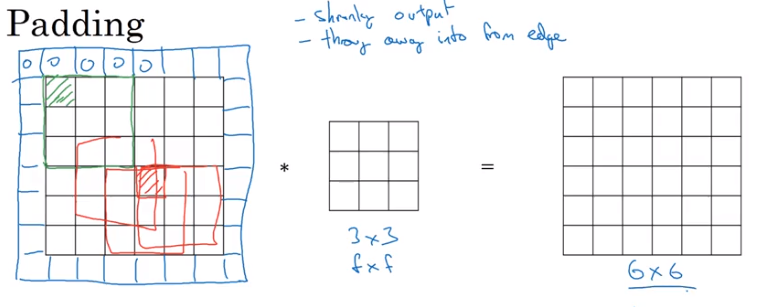 Padding
- shrinky output
- throw away info from edge
0 0 0 0 0
* =
3×3
f×f
6×6